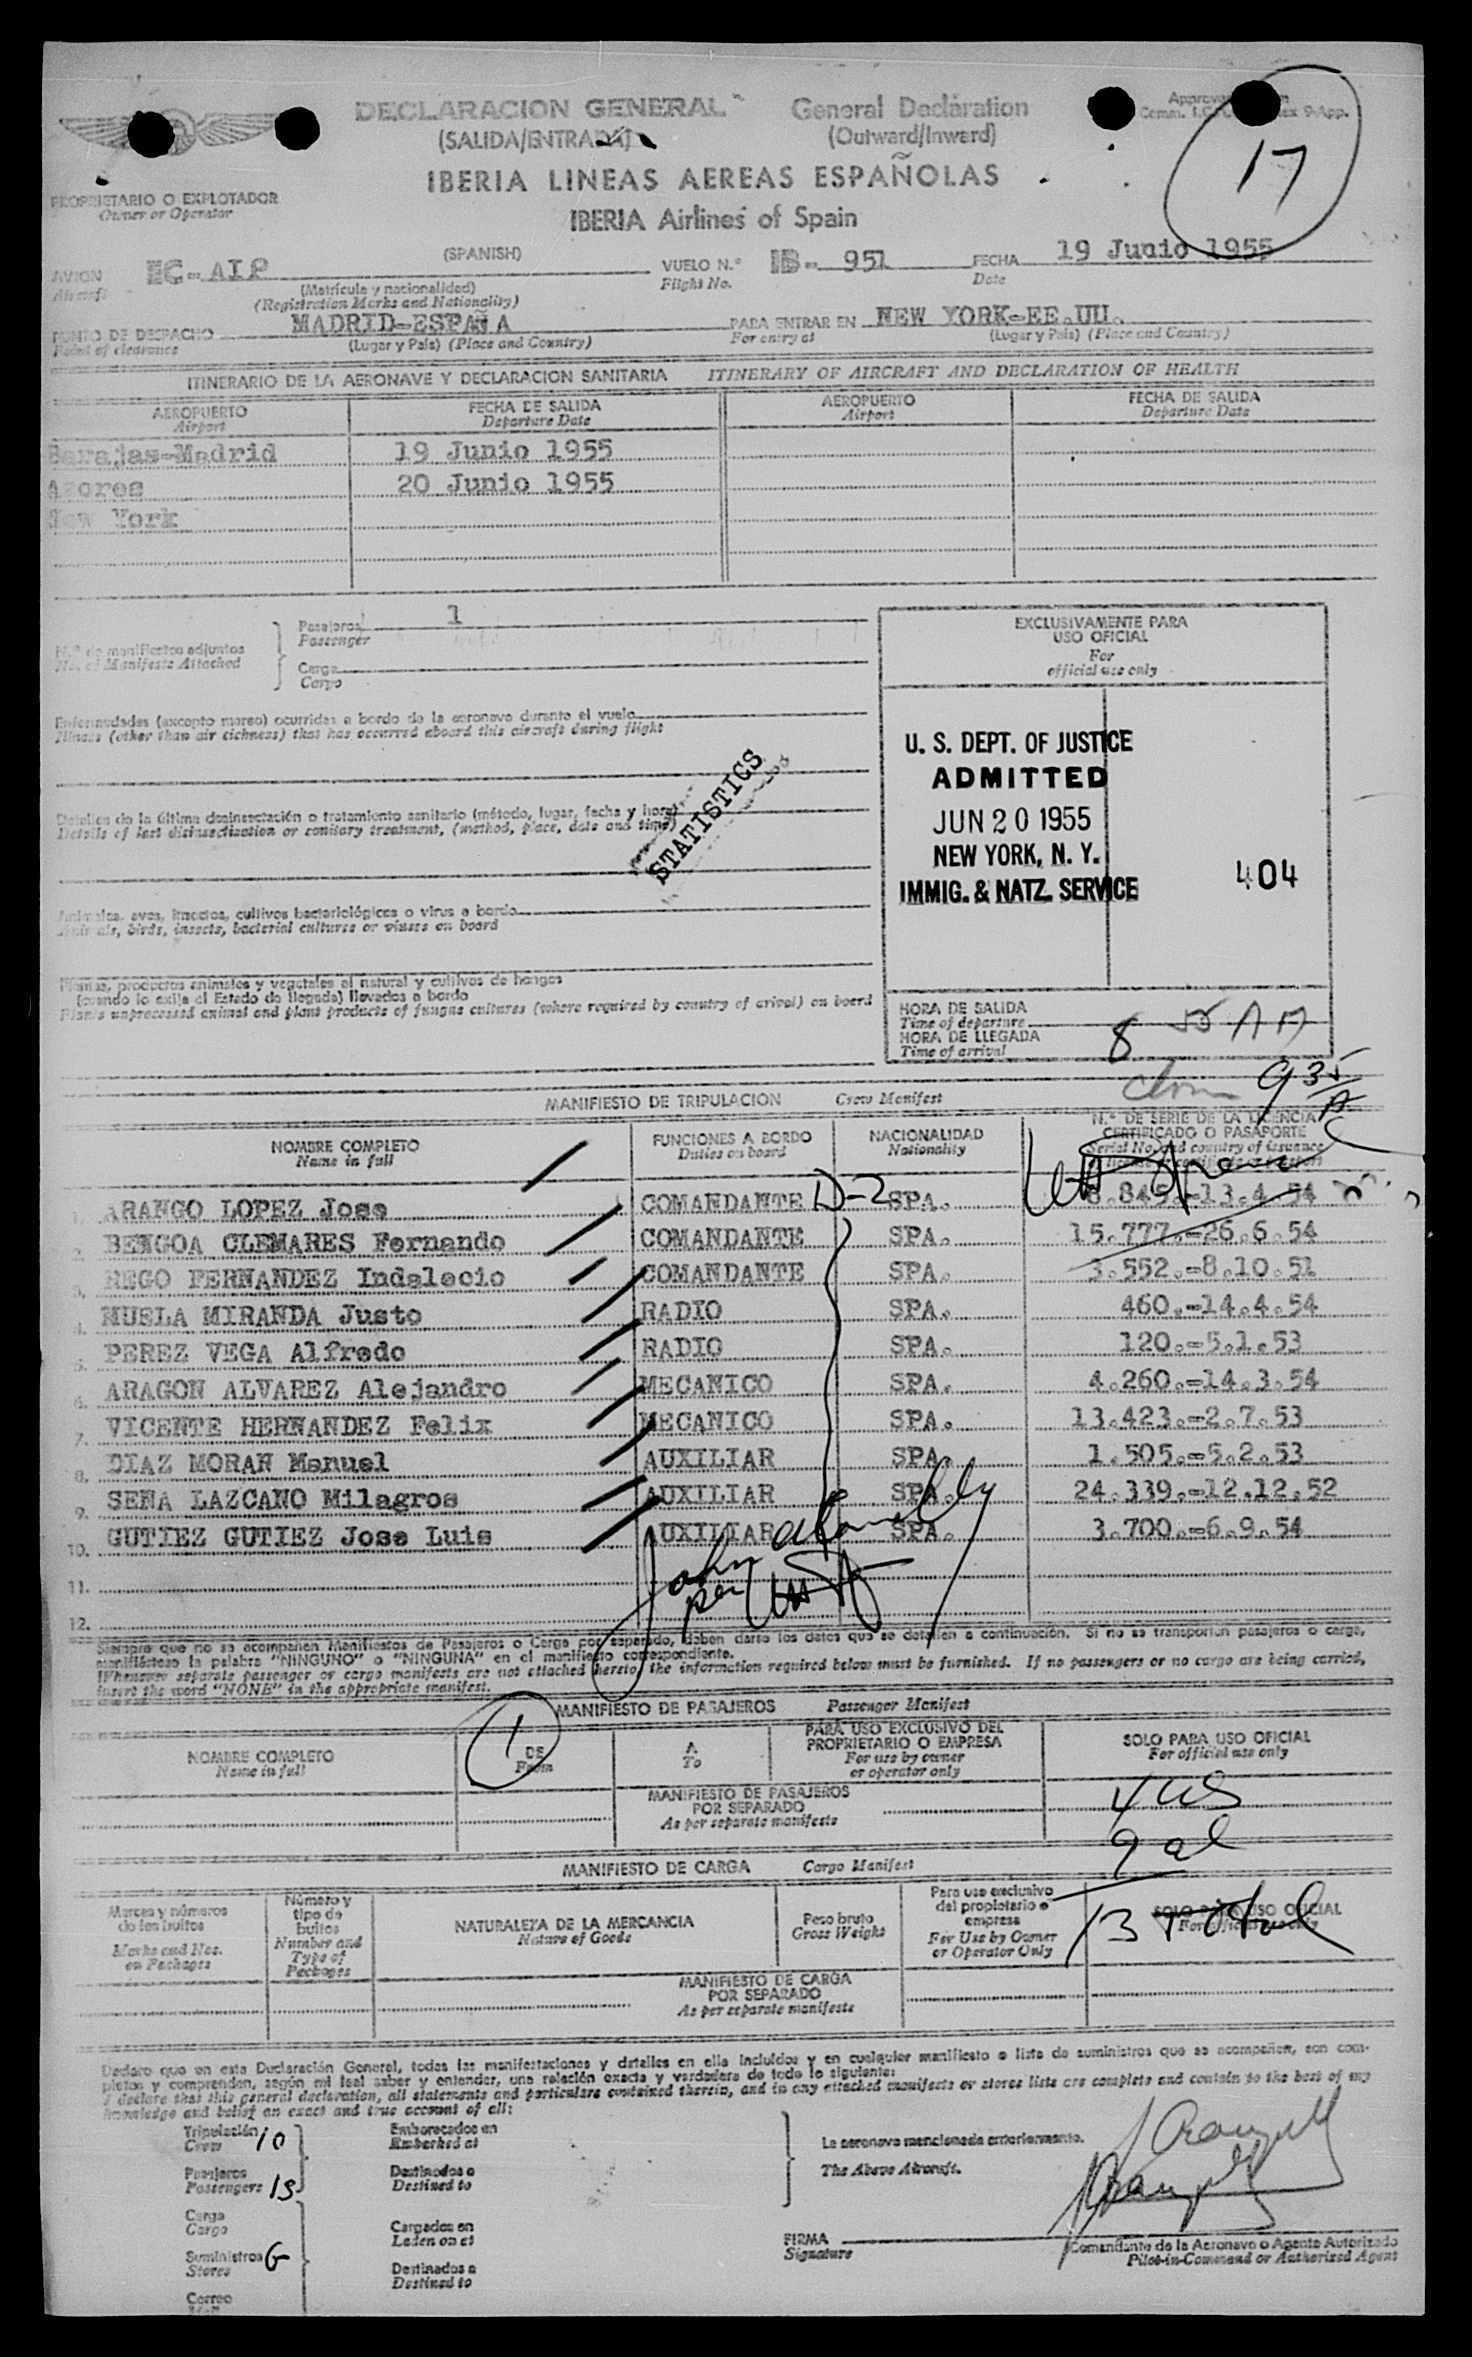 DECLARACION GENERAL General Declaration
(SALIDA/ENTRADA) (Outward/Inward)
IBERIA LINEAS AEREAS ESPAÑOLAS
IBERIA Airlines of Spain
17
PROPRIETARIO O EXPLOTADOR
Owner or Operator
(SPANISH)
AVION EC-AIP VUELO N.° IB- 951 FECHA 19 Junio 1955
Aircraft (Matrícula y nacionalidad) Flight No. Date
(Registration Marks and Nationality)
PUNTO DE DESPACHO MADRID-ESPAÑA PARA ENTRAR EN NEW YORK-EE.UU.
Point of clearance (Lugar y País) (Place and Country) For entry at (Lugar y País) (Place and Country)
ITINERARIO DE LA AERONAVE Y DECLARACION SANITARIA ITINERARY OF AIRCRAFT AND DECLARATION OF HEALTH
AEROPUERTO FECHA DE SALIDA AEROPUERTO FECHA DE SALIDA
Airport Departure Date Airport Departure Date
Barajas-Madrid 19 Junio 1955
Azores 20 Junio 1955
New York
Pasajeros 1
Passenger
N.° de manifiestos adjuntos
No. of Manifests Attached
Carga
Cargo
EXCLUSIVAMENTE PARA
USO OFICIAL
For
official use only
Enfermedades (excepto mareo) ocurridas a bordo de la aeronave durante el vuelo
Illness (other than air sickness) that has occurred aboard this aircraft during flight
U. S. DEPT. OF JUSTICE
ADMITTED
JUN 20 1955
NEW YORK, N. Y.
IMMIG. & NATZ. SERVICE
404
STATISTICS
Detalles de la última desinsectación o tratamiento sanitario (método, lugar, fecha y hora)
Details of last disinsectisation or sanitary treatment, (method, place, date and time)
Animales, aves, insectos, cultivos bacteriológicos o virus a bordo
Animals, birds, insects, bacterial cultures or viuses on board
Plantas, productos animales y vegetales al natural y cultivos de hongos
(cuando lo exija el Estado de llegada) llevados a bordo
Plants unprocessed animal and plant products of fungus cultures (where required by country of arival) on board
HORA DE SALIDA
Time of departure
HORA DE LLEGADA
Time of arrival
8 55 AM
935
A
MANIFIESTO DE TRIPULACION Crew Manifest
NOMBRE COMPLETO FUNCIONES A BORDO NACIONALIDAD N.° DE SERIE DE LA LICENCIA
Name in full Duties on board Nationality CERTIFICADO O PASAPORTE
Serial No. and country of issuance
ARANGO LOPEZ Jose COMANDANTE D-2 SPA. -13.4.54
2. BENGOA CLEMARES Fernando COMANDANTE SPA. 15.777.-26.6.54
3. REGO FERNANDEZ Indalecio COMANDANTE SPA. 3.552.-8.10.51
4. MUELA MIRANDA Justo RADIO SPA. 460.-14.4.54
5. PEREZ VEGA Alfredo RADIO SPA. 120.-5.1.53
6. ARAGON ALVAREZ Alejandro MECANICO SPA. 4.260.-14.3.54
7. VICENTE HERNANDEZ Felix MECANICO SPA. 13.423.-2.7.53
8. DIAZ MORAN Manuel AUXILIAR SPA. 1.505.-5.2.53
9. SENA LAZCANO Milagros AUXILIAR SPA. 24.339.-12.12.52
10. GUTIEZ GUTIEZ Jose Luis AUXILIAR SPA. 3.700.-6.9.54
John
per
11.
12.
Siempre que no se acompañen Manifiestos de Pasajeros o Carga por separado, deben darse los datos que se detallan a continuación. Si no se transportan pasajeros o carga,
manifiéstese la palabra "NINGUNO" o "NINGUNA" en el manifiesto correspondiente.
Whenever separate passenger or cargo manifests are not attached hereto, the information required below must be furnished. If no passengers or no cargo are being carried,
insert the word "NONE" in the appropriate manifest.
MANIFIESTO DE PASAJEROS Passenger Manifest
1
NOMBRE COMPLETO DE A PARA USO EXCLUSIVO DEL SOLO PARA USO OFICIAL
Name in full From To PROPRIETARIO O EMPRESA For official use only
For use by owner
or operator only
MANIFIESTO DE PASAJEROS
POR SEPARADO
As per separate manifests
4 US
9 al
13 Total
MANIFIESTO DE CARGA Cargo Manifest
Marcas y números
de los bultos
Marks and Nos.
on Packages
Número y
tipo de
bultos
Number and
Type of
Packages
NATURALEZA DE LA MERCANCIA
Nature of Goods
Peso bruto
Gross Weight
Para uso exclusivo
del propietario o
empresa
For Use by Owner
or Operator Only
SOLO PARA USO OFICIAL
For official use only
MANIFIESTO DE CARGA
POR SEPARADO
As per separate manifests
Declaro que en esta Declaración General, todas las manifestaciones y detalles en ella incluídos y en cualquier manifiesto o lista de suministros que se acompañen, son com-
pletos y comprenden, según mi leal saber y entender, una relación exacta y verdadera de todo lo siguiente:
I declare that this general declaration, all statements and particulars contained therein, and in any attached manifests or stores lists are complete and contain to the best of my
knowledge and belief an exact and true account of all:
Tripulación 10 Embarcados en
Crew Embarked at
La aeronave mencionada anteriormente.
Pasajeros 13 Destinados a
Passengers Destined to
The Above Aircraft.
Carga Cargados en
Cargo Laden on at
FIRMA
Signature
Comandante de la Aeronave o Agente Autorizado
Pilot-in-Command or Authorized Agent
Suministros G Destinados a
Stores Destined to
Correo